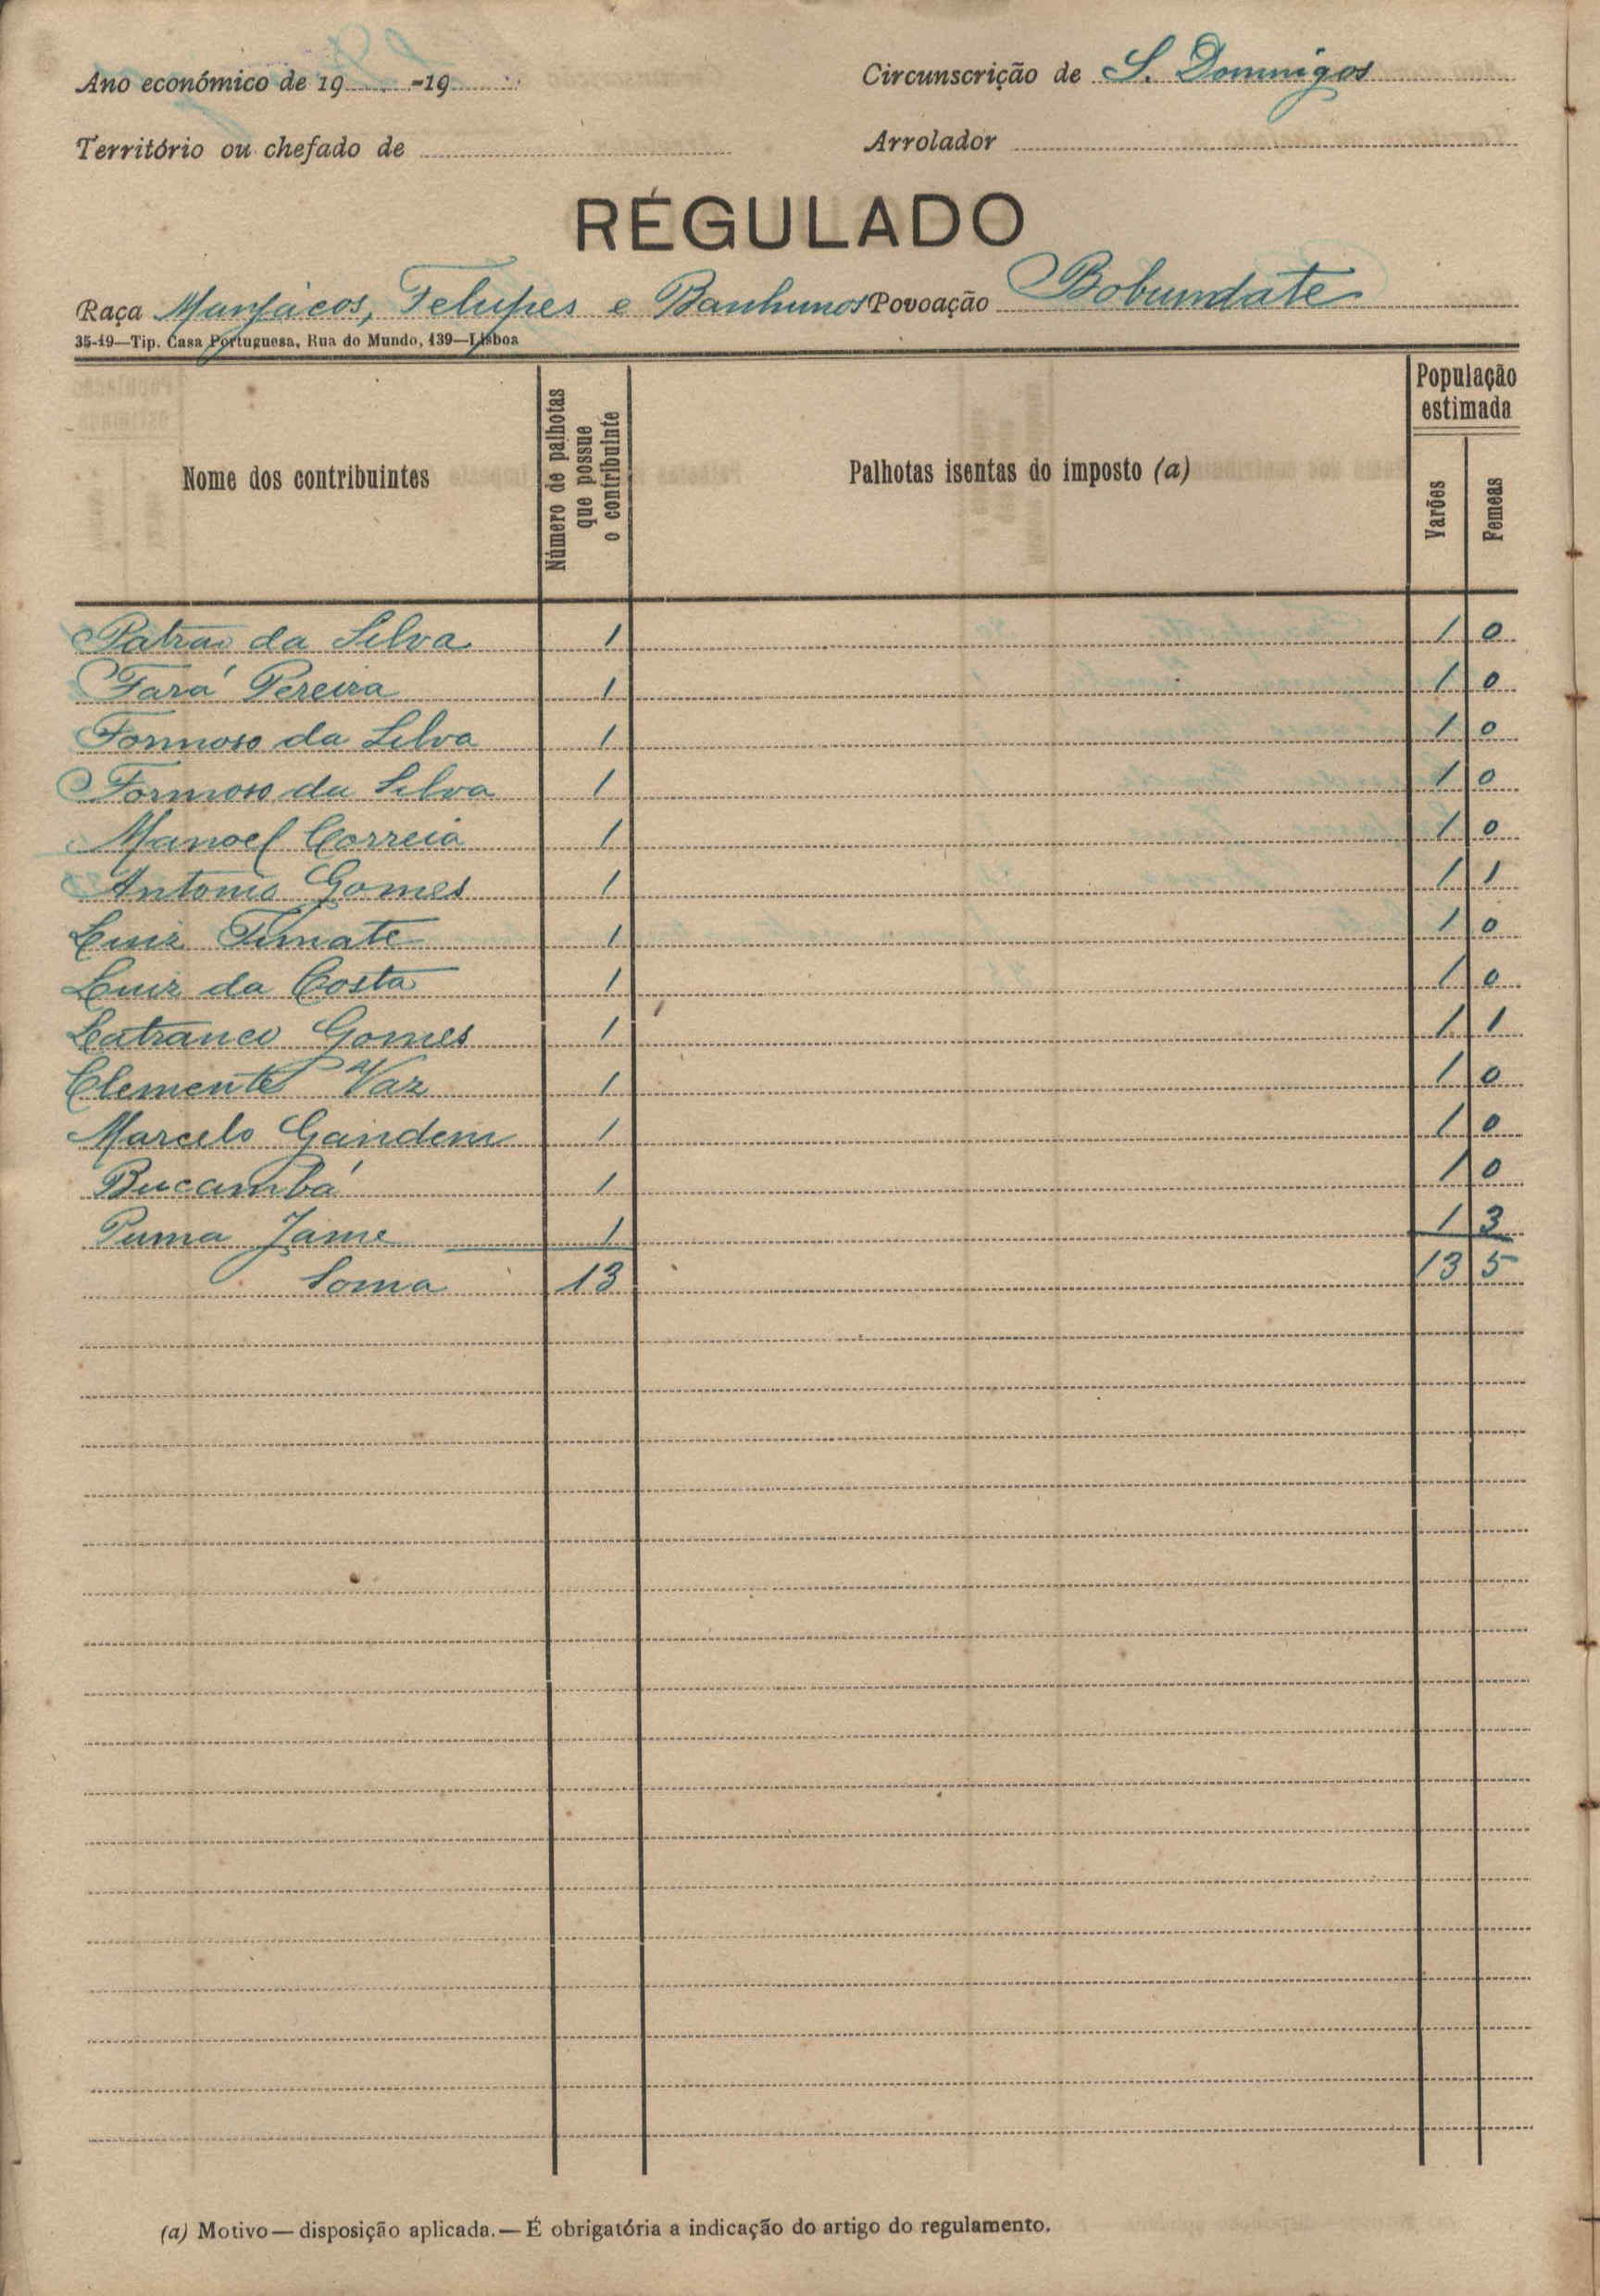 Ano económico de 19 -19
Circunscrição de S. Domingos
Território ou chefado de
Arrolador
RÉGULADO
Raça Manjácos, Felupes e Banhunos Povoação Bobundate
35-19—Tip. Casa Portuguesa, Rua do Mundo, 139—Lisboa
Nome dos contribuintes
Número de palhotas que possue o contribuinte
Palhotas isentas do imposto (a)
População estimada
Varões
Femeas
Patrão da Silva 1 1 0
Fará Pereira 1 1 0
Formoso da Silva 1 1 0
Formoso da Silva 1 1 0
Manoel Correia 1 1 0
Antonio Gomes 1 1 1
Luiz Timate 1 1 0
Luiz da Costa 1 1 0
Gomes 1 1 1
Clemente Vaz 1 1 0
Marcelo 1 1 0
Bucambá 1 1 0
Puma Jame 1 1 3
Soma 13 13 5
(a) Motivo — disposição aplicada. — É obrigatória a indicação do artigo do regulamento.